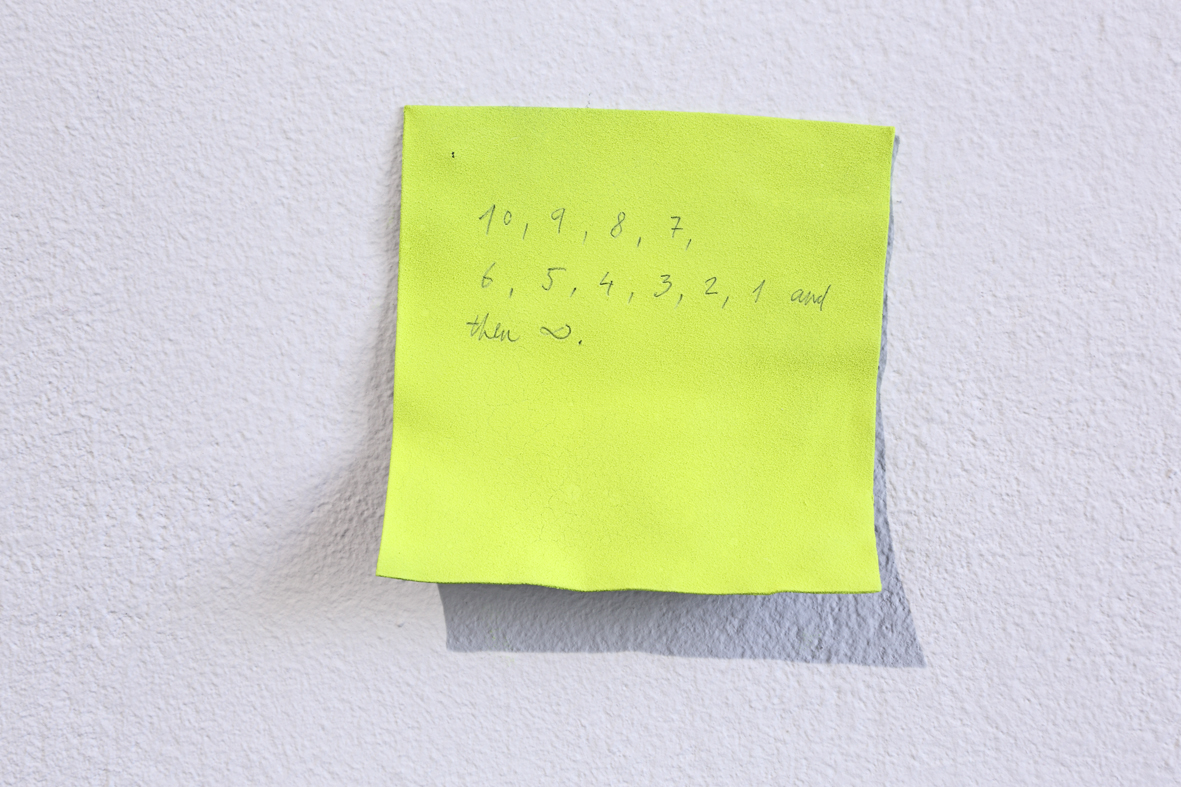 10, 9, 8, 7,
6, 5, 4, 3, 2, 1 and
then ∞.